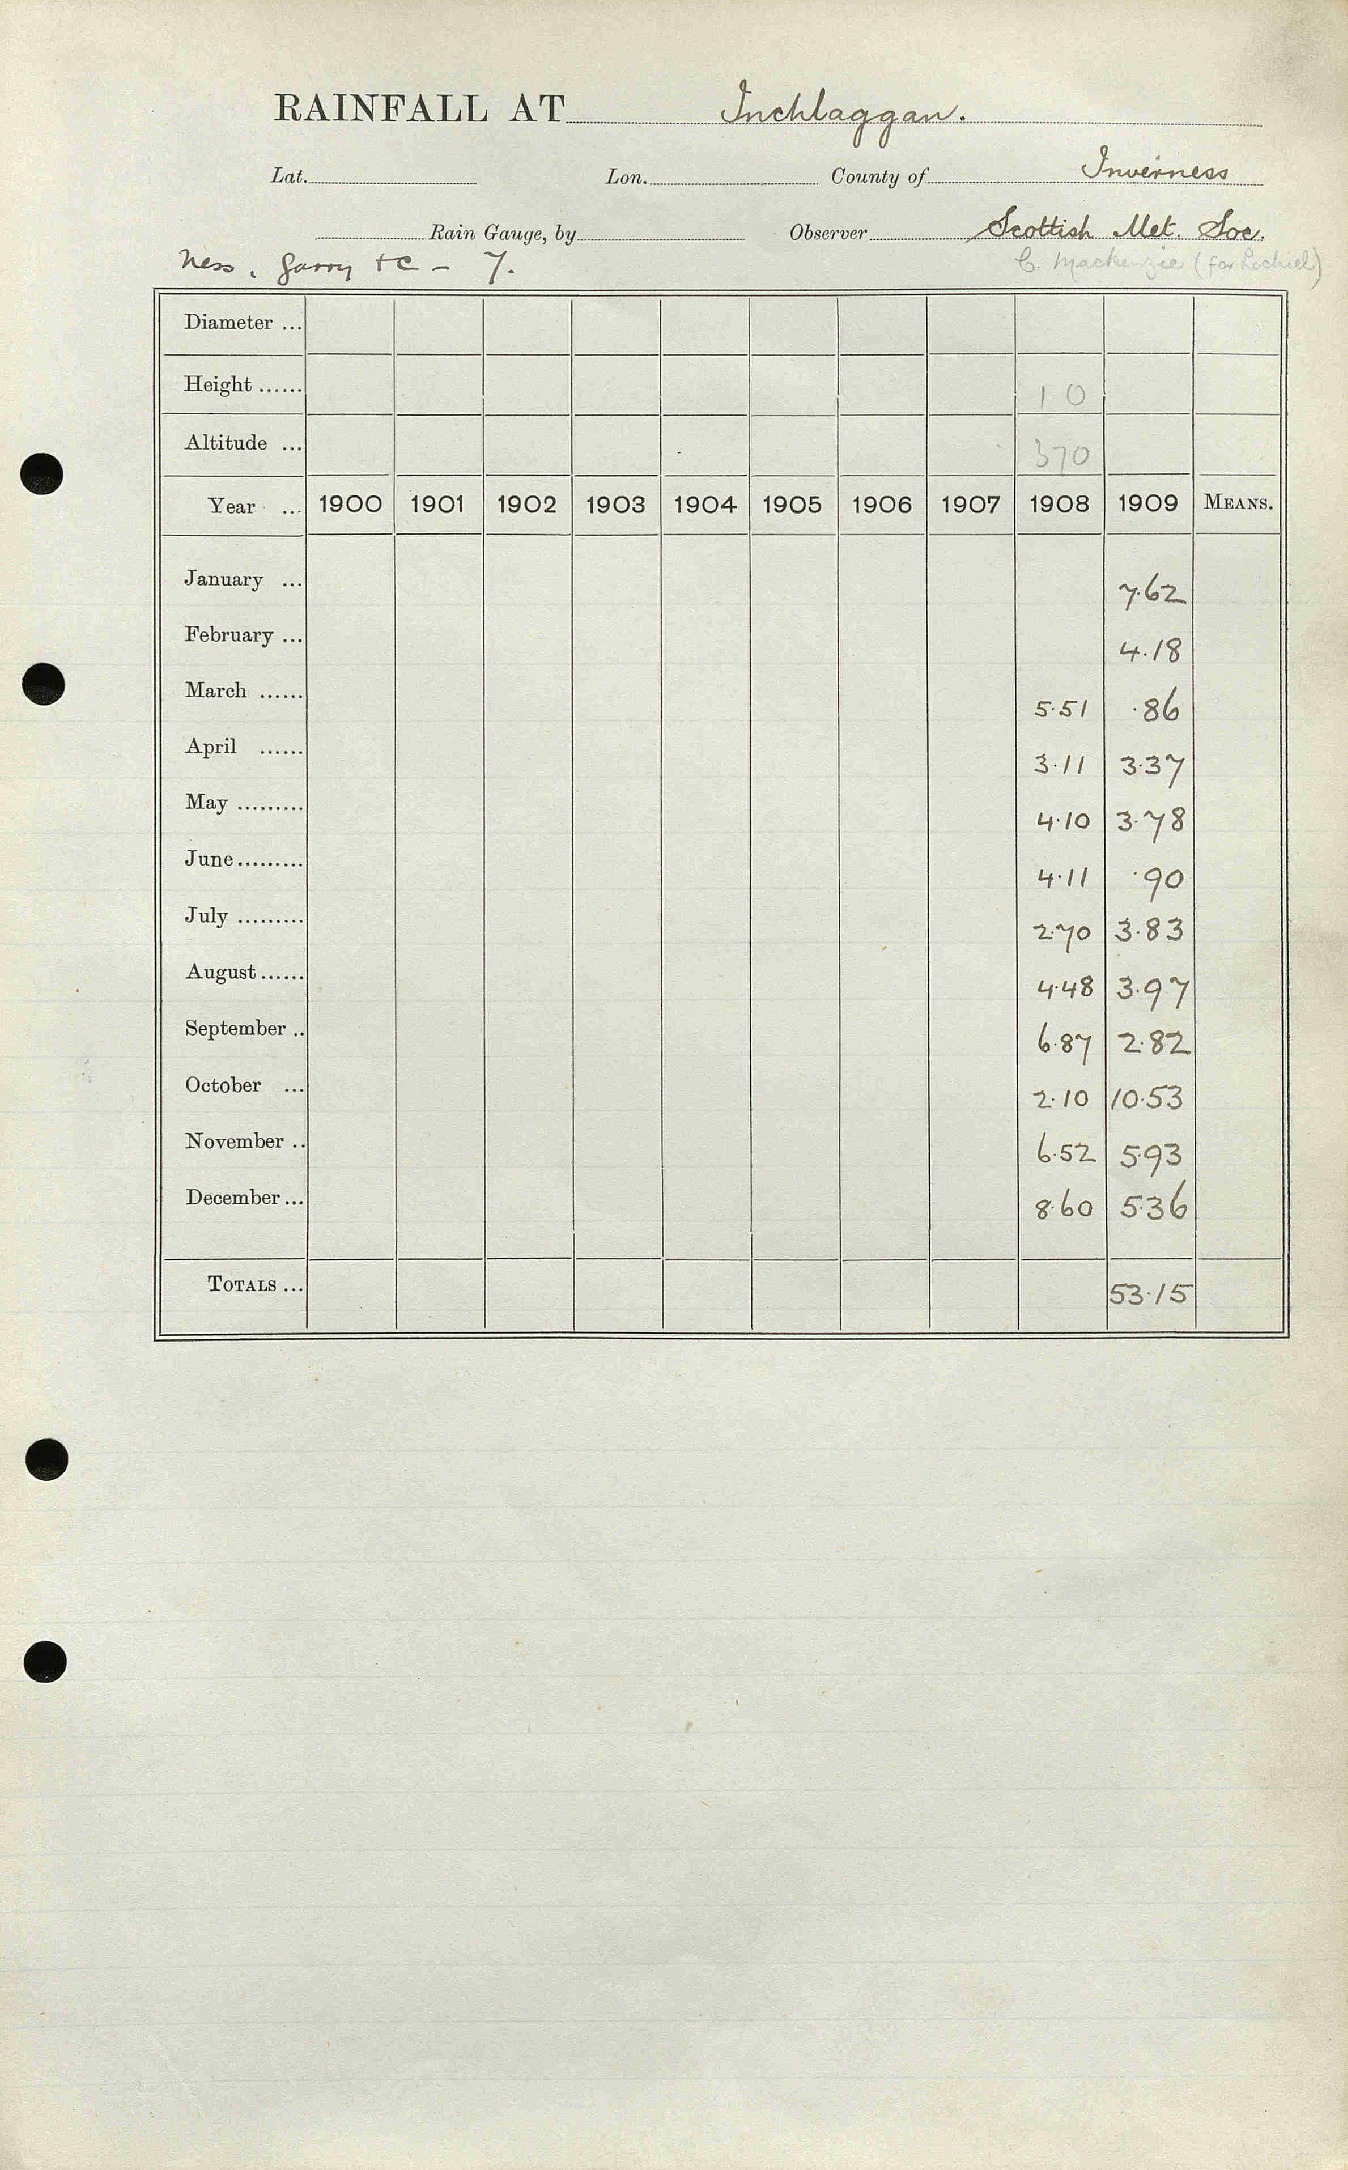 RAINFALL AT Inchlaggan.
Lat. Lon. County of Inverness
Rain Gauge, by Observer Scottish Met. Soc.
Ness, Garry &c - 7. C. Mackenzie (for Lochiel)
Diameter ...
Height ...... 1 0
Altitude ... 370
Year ... 1900 1901 1902 1903 1904 1905 1906 1907 1908 1909 MEANS.
January ... 7.62
February ... 4.18
March ...... 5.51 .86
April ...... 3.11 3.37
May ......... 4.10 3.78
June......... 4.11 .90
July ......... 2.70 3.83
August...... 4.48 3.97
September .. 6.87 2.82
October ... 2.10 10.53
November .. 6.52 5.93
December... 8.60 5.36
TOTALS ... 53.15